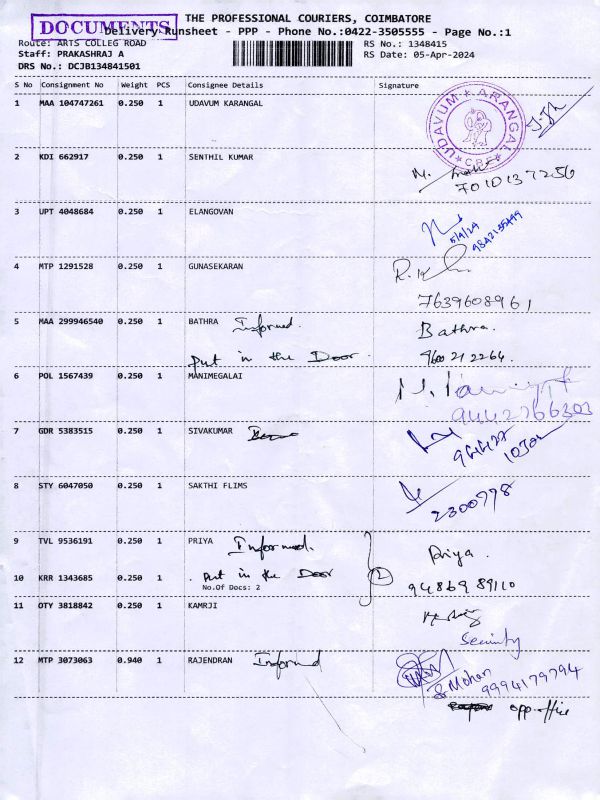 DOCUMENTS
THE PROFESSIONAL COURIERS, COIMBATORE
Delivery Runsheet - PPP - Phone No.:0422-3505555 - Page No.:1
Route: ARTS COLLEG ROAD
RS No.: 1348415
Staff: PRAKASHRAJ A
RS Date: 05-Apr-2024
DRS No.: DCJB134841501
S No Consignment No Weight PCS Consignee Details Signature
1 MAA 104747261 0.250 1 UDAVUM KARANGAL
UDAVUM KARANGAL CBE
2 KDI 662917 0.250 1 SENTHIL KUMAR
7010137256
3 UPT 4048684 0.250 1 ELANGOVAN
5/4/24
4 MTP 1291528 0.250 1 GUNASEKARAN
7639608961
5 MAA 299946540 0.250 1 BATHRA Informed. Bathra.
Put in the Door. 9600212264.
6 POL 1567439 0.250 1 MANIMEGALAI
9442766303
7 GDR 5383515 0.250 1 SIVAKUMAR
8 STY 6047050 0.250 1 SAKTHI FLIMS
2300778
9 TVL 9536191 0.250 1 PRIYA Informed. Priya.
10 KRR 1343685 0.250 1 Put in the Door 2 9486989110
No.Of Docs: 2
11 OTY 3818842 0.250 1 KAMRJI
Security
12 MTP 3073063 0.940 1 RAJENDRAN Informed
Mohan 9994179794
opp.office